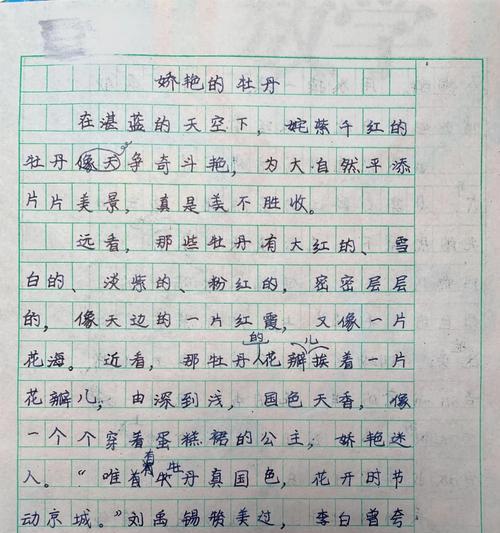 娇艳的牡丹
在湛蓝的天空下，姹紫千红的
牡丹争奇斗艳，为大自然平添
片片美景，真是美不胜收。
远看，那些牡丹有大红的、雪
白的、淡紫的、粉红的，密密层层
的，像天边的一片红霞，又像一片
花海。近看，那牡丹的花瓣儿挨着一片
花瓣儿，由深到浅，国色天香，像
一个个穿着蛋糕裙的公主，娇艳迷
人。“唯有牡丹真国色，花开时节
动京城。”刘禹锡赞美过，李白曾夸